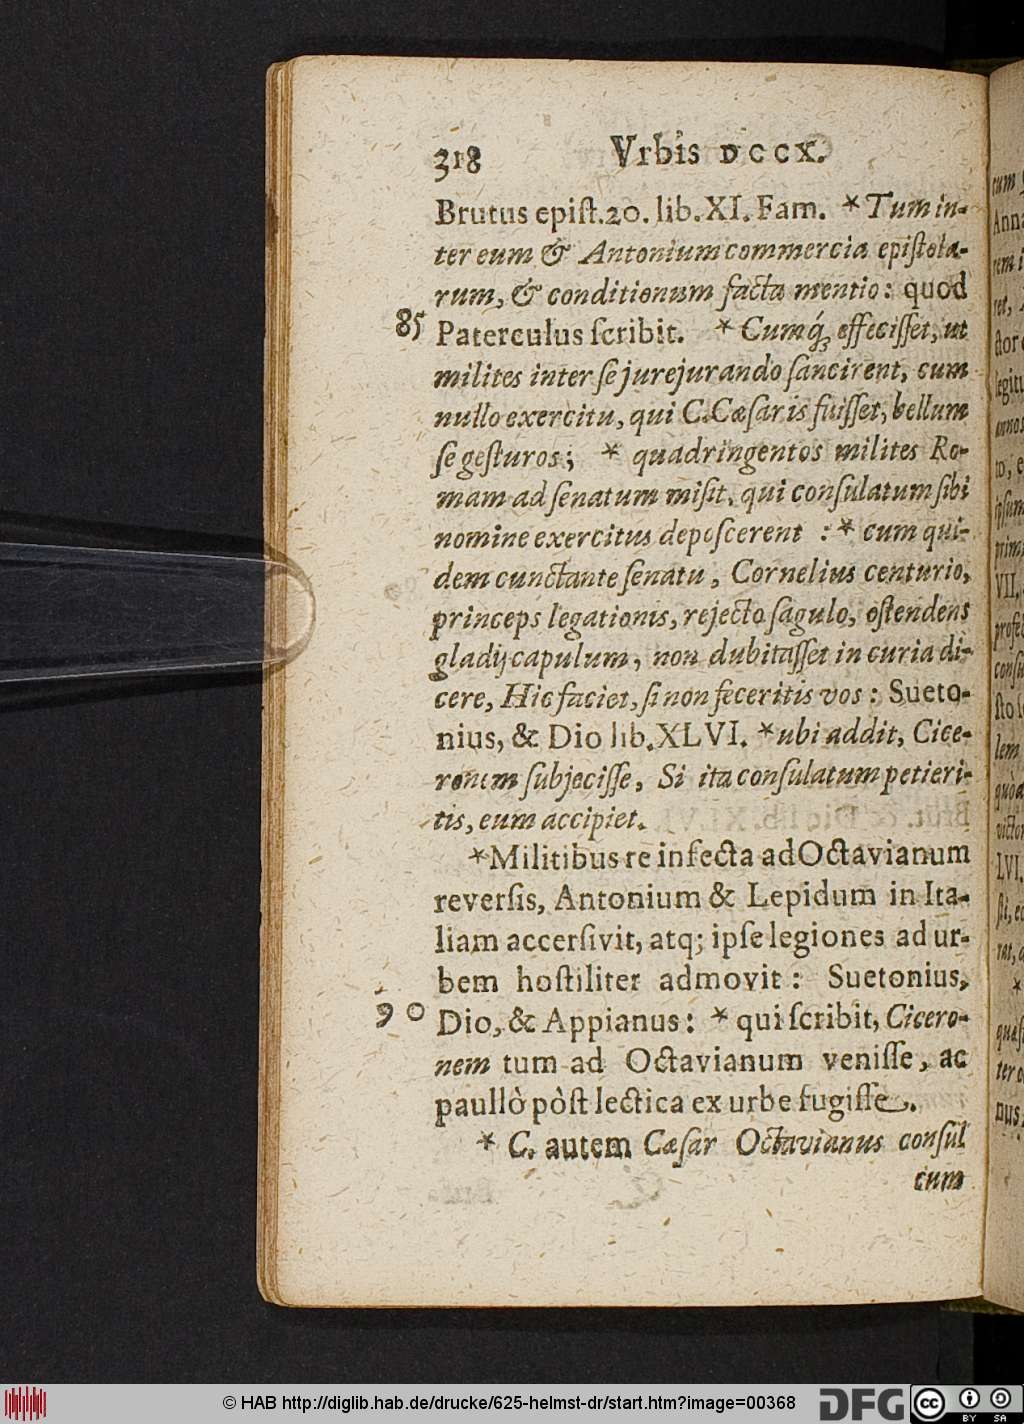 318 Vrbis DCCX.
Brutus epiſt.20. lib. XI. Fam. * Tum in-
ter eum & Antonium commercia epiſtola-
rum, & conditionum facta mentio: quod
85 Paterculus ſcribit. * Cumq́; effeciſſet, ut
milites inter ſe jurejurando ſancirent, cum
nullo exercitu, qui C. Cæſaris fuiſſet, bellum
ſe geſturos; * quadringentos milites Ro-
mam ad ſenatum miſit, qui conſulatum ſibi
nomine exercitus depoſcerent : * cum qui-
dem cunctante ſenatu, Cornelius centurio,
princeps legationis, rejecto ſagulo, oſtendens
gladij capulum, non dubitaſſet in curia di-
cere, Hic faciet, ſi non feceritis vos: Sueto-
nius, & Dio lib. XLVI. * ubi addit, Cice-
ronem ſubjeciſſe, Si ita conſulatum petieri-
tis, eum accipiet.
* Militibus re infecta ad Octavianum
reverſis, Antonium & Lepidum in Ita-
liam accerſivit, atq; ipſe legiones ad ur-
bem hoſtiliter admovit: Suetonius,
90 Dio, & Appianus: * qui ſcribit, Cicero-
nem tum ad Octavianum veniſſe, ac
paullò pòſt lectica ex urbe fugiſſe.
* C. autem Cæſar Octavianus conſul
cum
© HAB http://diglib.hab.de/drucke/625-helmst-dr/start.htm?image=00368 DFG cc BY SA